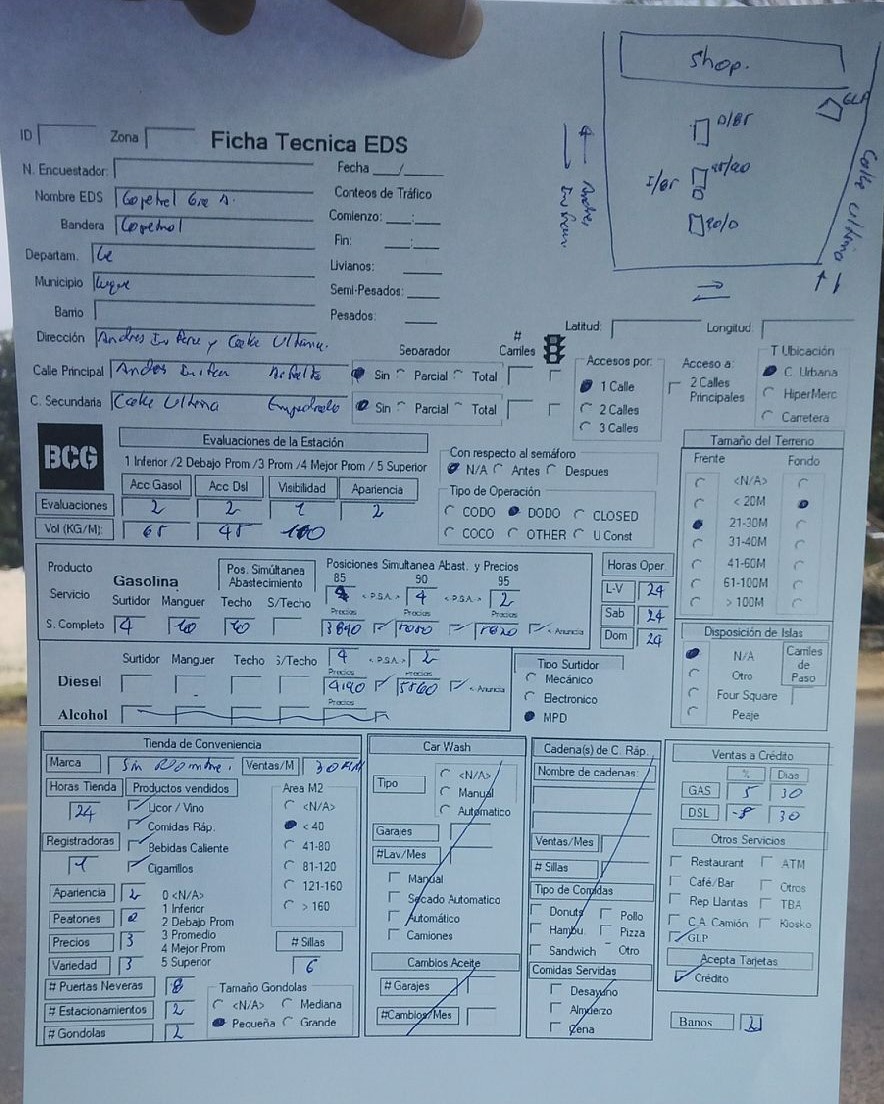 Shop.
GLP
D/85
95/90
I/85
90/D
Calle Ultima
ID
Zona
Ficha Tecnica EDS
N. Encuestador:
Fecha ___/___
Nombre EDS
Conteos de Tráfico
Bandera Copetrol
Comienzo: ___:___
Fin: ___:___
Departam.
Livianos:
Municipio Luque
Semi-Pesados:
Barrio
Pesados:
Dirección y Calle Ultima.
Latitud:
Longitud:
Separador
# Carriles
Calle Principal Andres
Sin Parcial Total
C. Secundaria Calle Ultima Empedrado
Sin Parcial Total
Accesos por:
1 Calle
2 Calles
3 Calles
Acceso a:
2 Calles Principales
T Ubicación
C. Urbana
HiperMerc
Carretera
BCG
Evaluaciones de la Estación
1 Inferior /2 Debajo Prom /3 Prom /4 Mejor Prom / 5 Superior
Acc Gasol Acc Dsl Visibilidad Apariencia
Evaluaciones 2 2 1 2
Vol (KG/M): 65 45 100
Con respecto al semáforo
N/A Antes Despues
Tipo de Operación
CODO DODO CLOSED
COCO OTHER U Const
Tamaño del Terreno
Frente Fondo
<N/A>
< 20M
21-30M
31-40M
41-60M
61-100M
> 100M
Producto
Gasolina
Pos. Simúltánea Abastecimiento
Posiciones Simultanea Abast. y Precios
85 90 95
Servicio
Surtidor Manguer Techo S/Techo
4 < P.S.A > 4 < P.S.A > 2
Precios Precios Precios
S. Completo 4 10 10
< Anuncia
Horas Oper.
L-V 24
Sab 24
Dom 24
Disposición de Islas
N/A
Otro
Four Square
Peaje
Carriles de Paso
Diesel
Surtidor Manguer Techo S/Techo
4 < P.S.A > 2
Precios Precios
4190 5860 < Anuncia
Alcohol
Precios
Tipo Surtidor
Mecánico
Electronico
MPD
Tienda de Conveniencia
Marca Sin Nombre.
Ventas/M
Horas Tienda
24
Productos vendidos
Licor / Vino
Comidas Ráp.
Bebidas Caliente
Cigarrillos
Registradoras
1
Area M2
<N/A>
< 40
41-80
81-120
121-160
> 160
Apariencia 2
Peatones 2
Precios 3
Variedad 3
0 <N/A>
1 Inferior
2 Debajo Prom
3 Promedio
4 Mejor Prom
5 Superior
# Sillas
6
# Puertas Neveras 8
# Estacionamientos 2
# Gondolas 2
Tamaño Gondolas
<N/A> Mediana
Pequeña Grande
Car Wash
Tipo
<N/A>
Manual
Automático
Garajes
#Lav/Mes
Manual
Secado Automatico
Automático
Camiones
Cambios Aceite
# Garajes
#Cambios/Mes
Cadena(s) de C. Ráp.
Nombre de cadenas:
Ventas/Mes
# Sillas
Tipo de Comidas
Donuts Pollo
Hambu. Pizza
Sandwich Otro
Comidas Servidas
Desayuno
Almuerzo
Cena
Ventas a Crédito
% Dias
GAS 5 30
DSL 5 30
Otros Servicios
Restaurant ATM
Café/Bar Otros
Rep Llantas TBA
C.A. Camión Kiosko
GLP
Acepta Tarjetas
Crédito
Banos